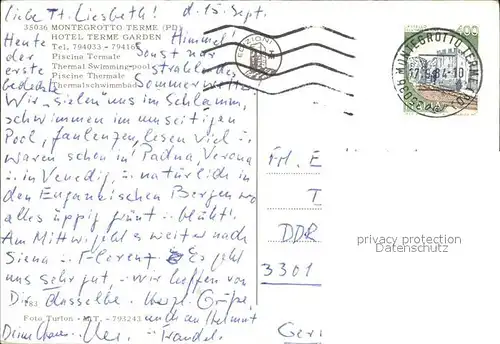 liebe Tt. Liesbeth! d. 15. Sept.
35036 MONTEGROTTO TERME (PD)
HOTEL TERME GARDEN
Tel. 794033 - 79416
Piscina Termale
Thermal Swimming-pool
Piscine Thermale
Thermalschwimmbad
Heute Himmel!
der Sonst nur
erste strahlendes
bedeckte Sommerwetter
Wir sielen uns im Schlamm,
schwimmen im
Pool, faulenzen, lesen viel u.
waren schon in Padua, Verona
u. in Venedig, u. natürlich in
den Euganäischen Bergen wo
alles üppig grünt u. blüht!
Am Mittw. geht es weiter nach
Siena u. Florenz. Es geht
uns sehr gut, - wir hoffen von
Dir dasselbe. Herzl. Grüße,
auch an Helmut
Deine
Foto Turlon - MT. - 793243
EDIZIONI
400
MONTEGROTTO TERME (PD)
17.9.84-10
35036
Frl. E
T
DDR
3301
Ger
privacy protection
watermark